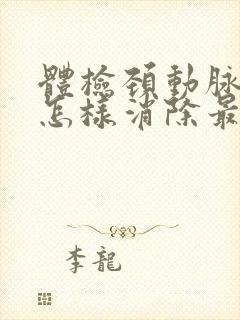 體檢頚動脉
怎樣消除最
李龍